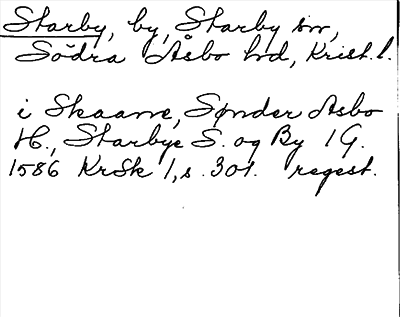 Starby, by, Starby sn,
Södra Åsbo hd, Krist. l.
i Skaane, Sønder Asbo
H., Starbye S. og By 1 G.
1586 KrSk 1, s. 301. regest.